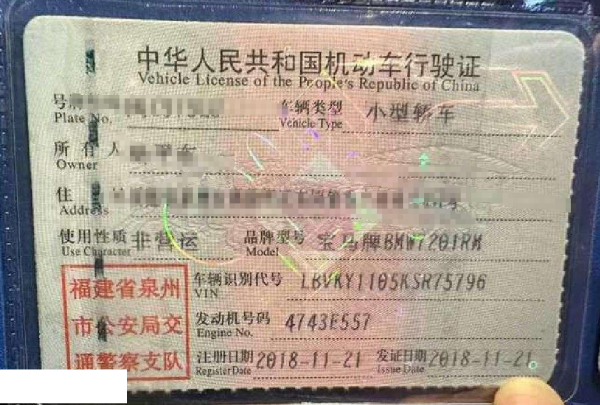 中华人民共和国机动车行驶证
Vehicle License of the People's Republic of China
号牌 车辆类型 小型轿车
Plate No. Vehicle Type
所有人
Owner
住
Address
使用性质 非营运 品牌型号 宝马牌BMW7201RM
Use Character Model
车辆识别代号 LBVKY1105KSR75796
VIN
发动机号码 4743E557
Engine No.
注册日期 2018-11-21 发证日期 2018-11-21
Register Date Issue Date
福建省泉州
市公安局交
通警察支队